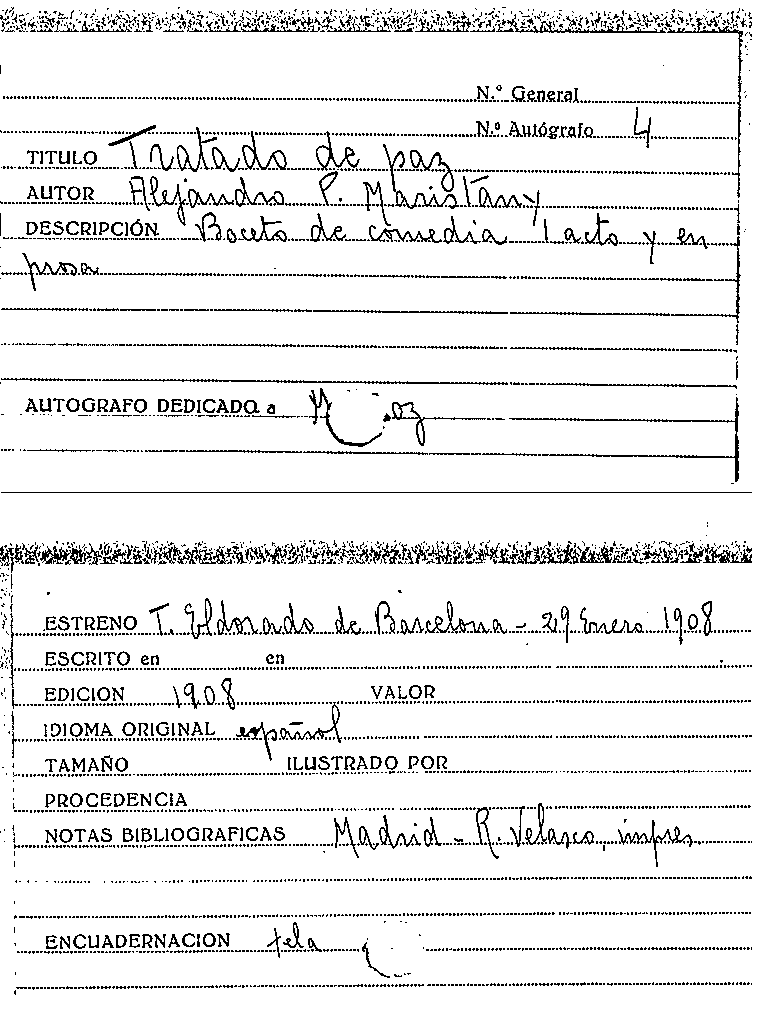 N.º General
N.º Autógrafo 4
TITULO Tratado de paz
AUTOR Alejandro P. Maristany
DESCRIPCIÓN Boceto de comedia 1 acto y en
prosa
AUTOGRAFO DEDICADO a
ESTRENO T. Eldorado de Barcelona - 29 Enero 1908
ESCRITO en en
EDICION 1908 VALOR
IDIOMA ORIGINAL español
TAMAÑO ILUSTRADO POR
PROCEDENCIA
NOTAS BIBLIOGRAFICAS Madrid - R. Velasco, impres.
ENCUADERNACION tela